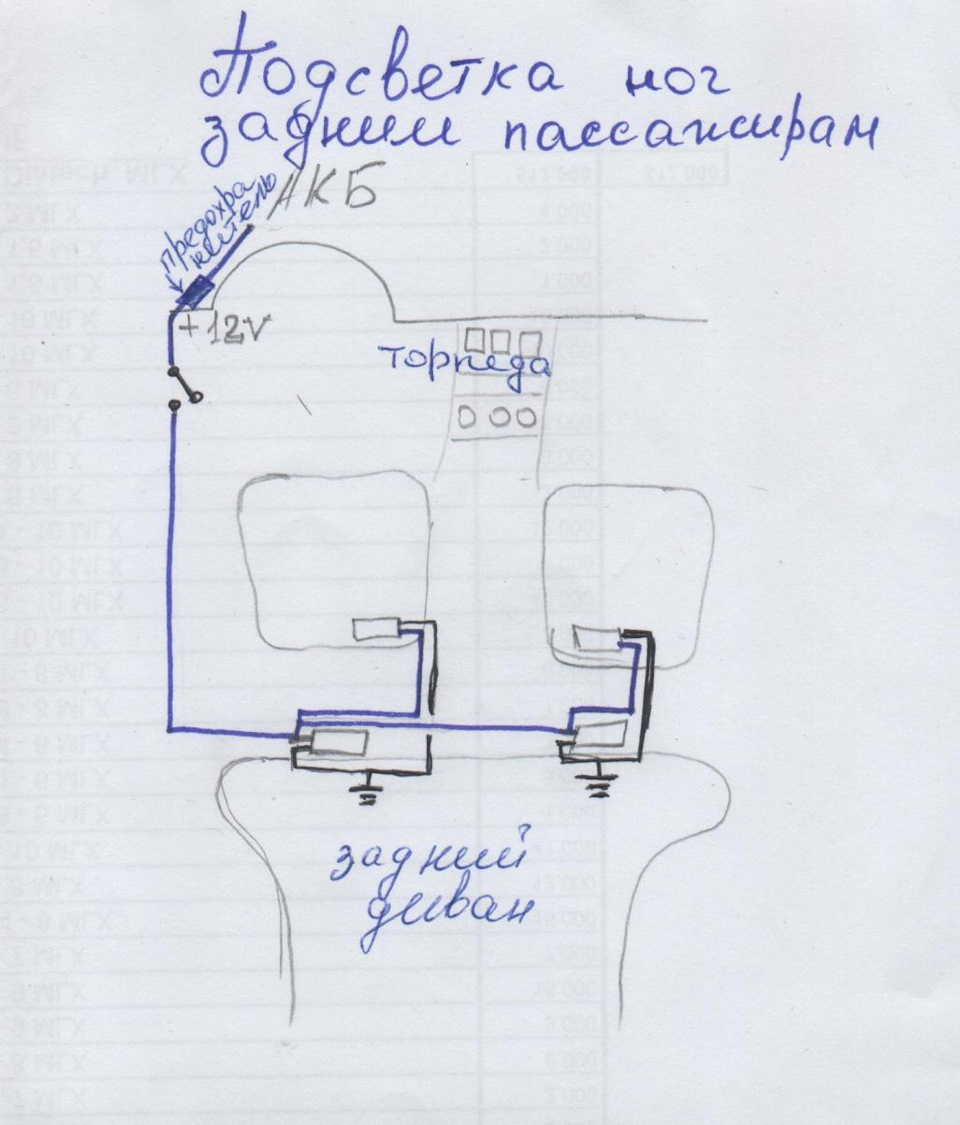 Подсветка ног
задним пассажирам
АКБ
предохра
нитель
+12V
торпеда
задний
диван